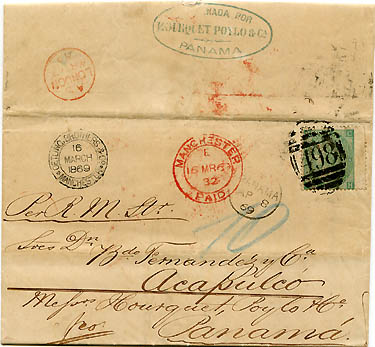 NADA POR
HOURQUET POYLO & Co.
PANAMA
LONDON
BROTHERS & Co.
16
MARCH
1869
MANCHESTER
MANCHESTER
E
16 MR 69
32
PAID
498
PANAMA
AP 6
69
Per R. M. Str.
10
Sres Dn. Bdo Fernandez y Ca
Acapulco
Messrs Hourquet, Poylo & Co
pro Panamá.